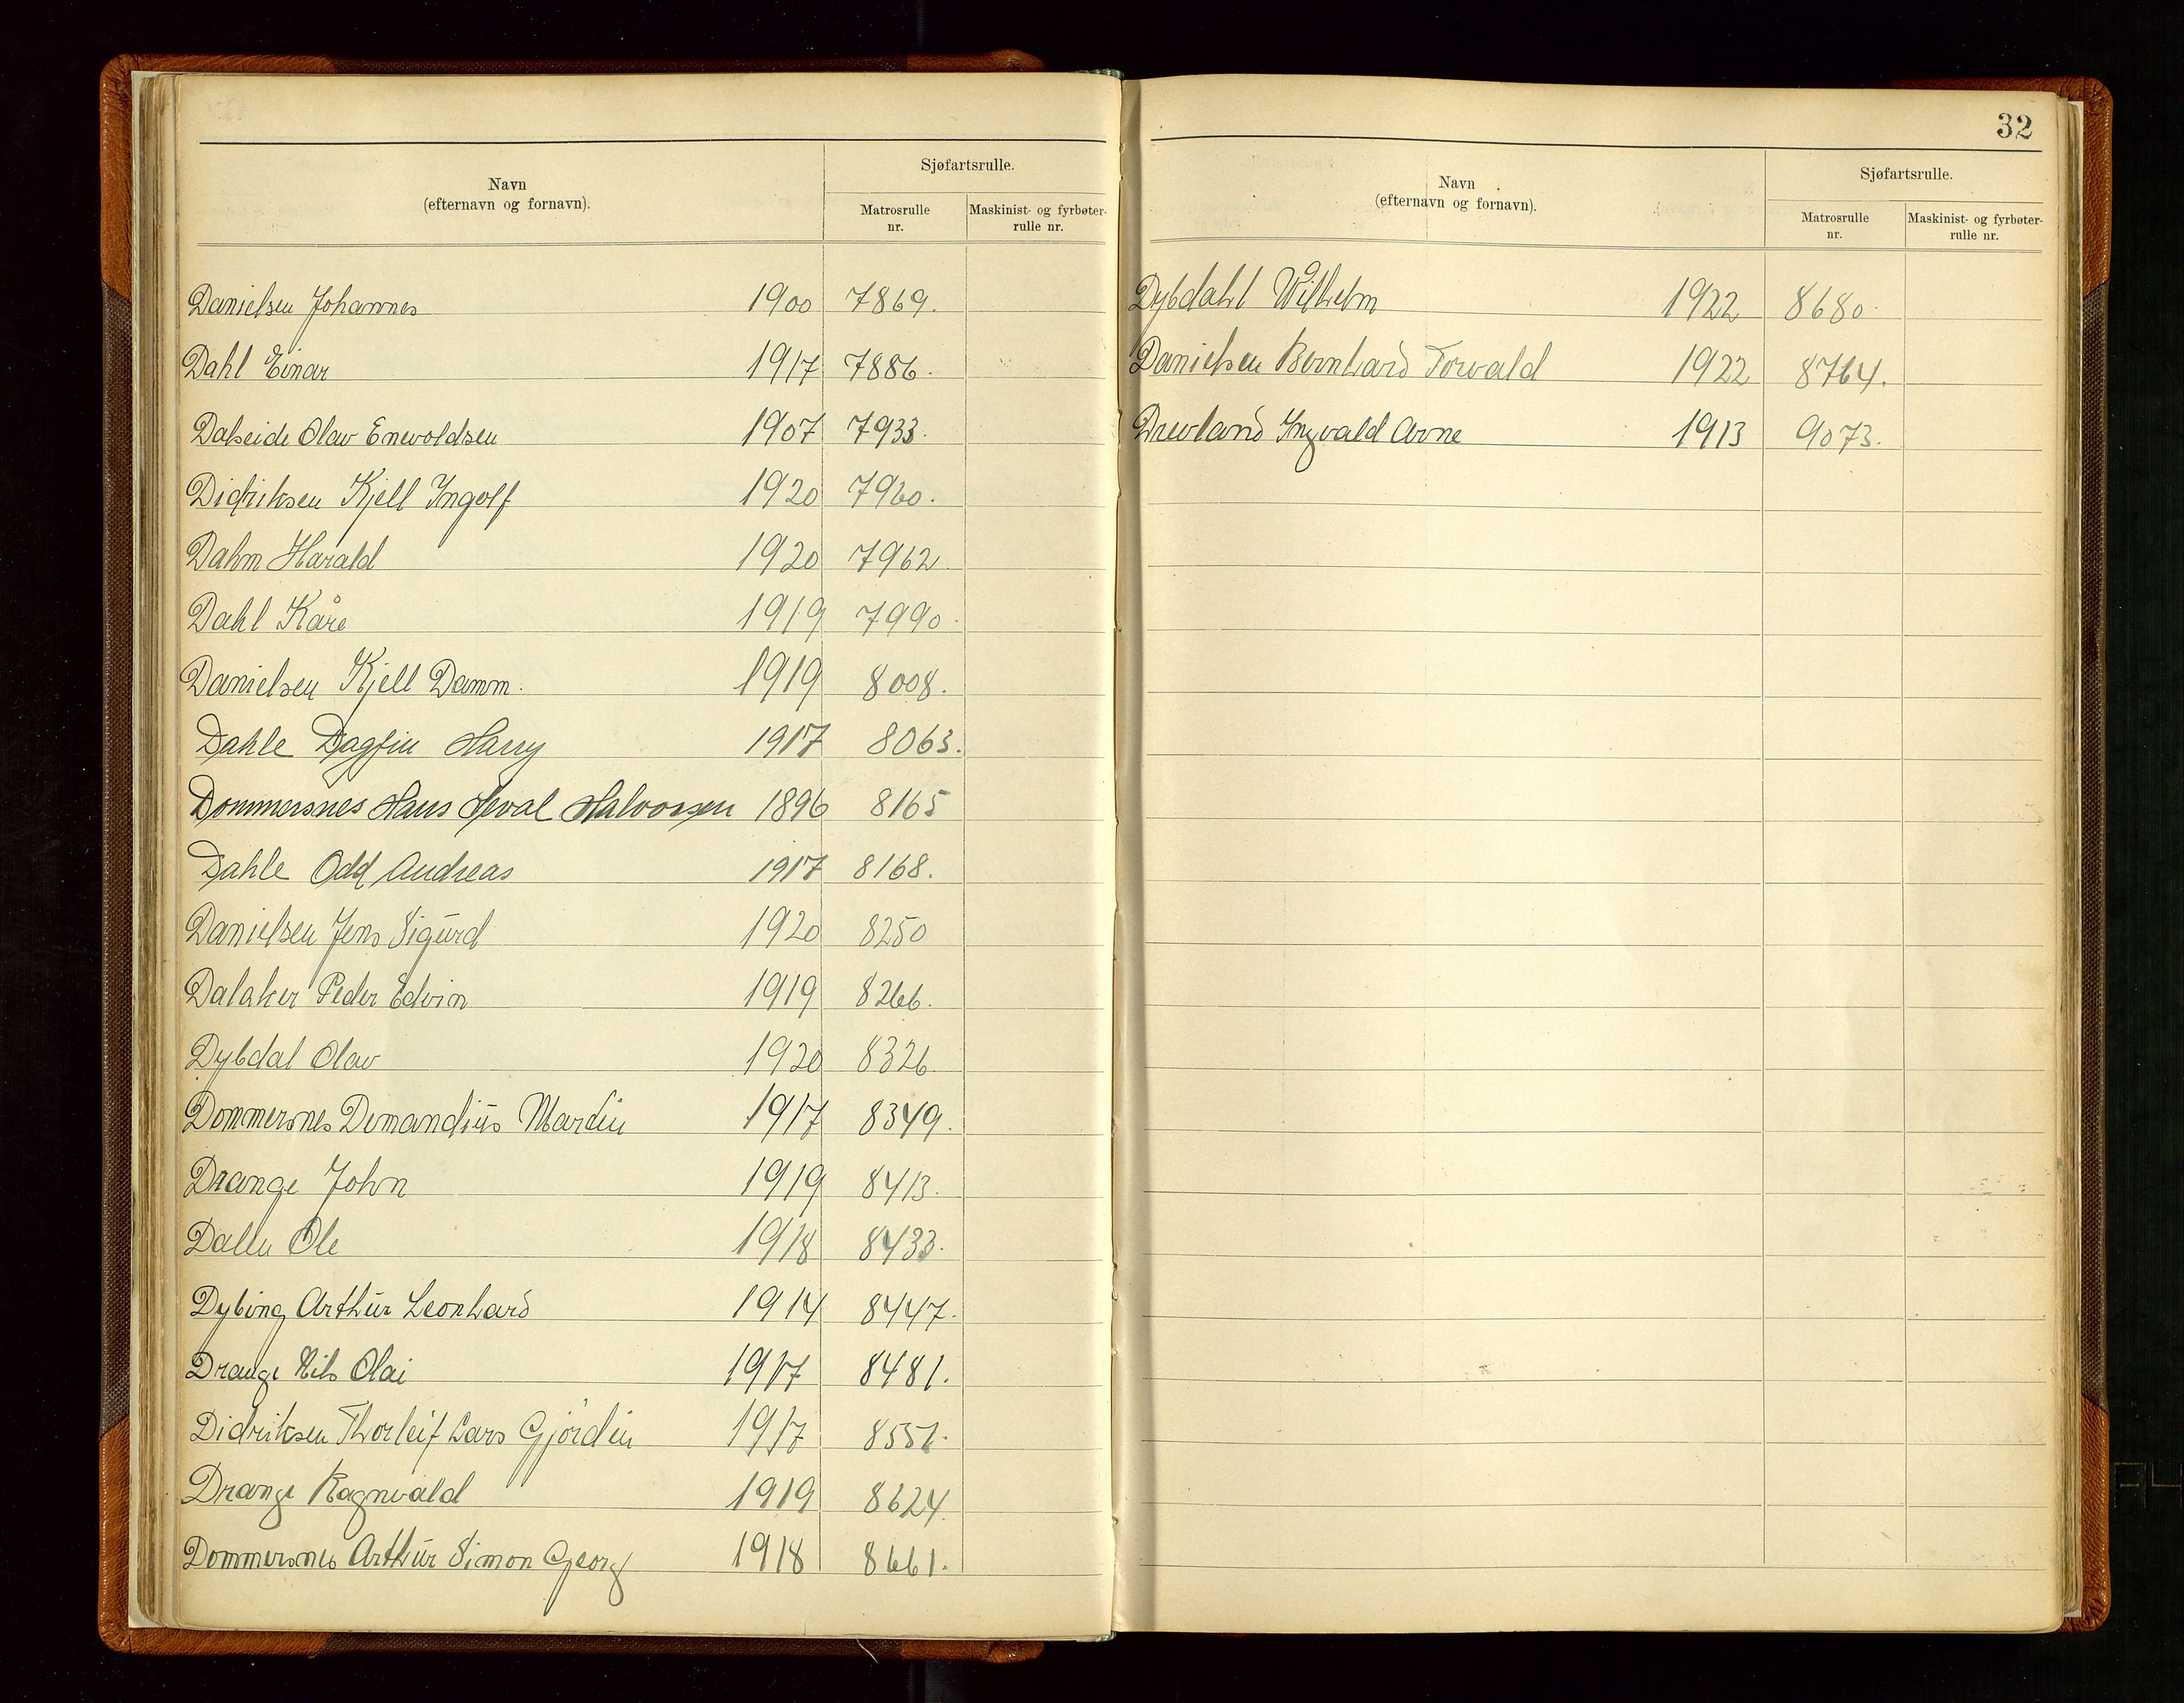 Navn
(efternavn og fornavn).
Sjøfartsrulle.
Matrosrulle
nr.
Maskinist- og fyrbøter-
rulle nr.
Danielsen Johannes 1900 7869.
Dahl Einar 1917 7886.
Dalseide Olav Enevoldsen 1907 7933.
Didriksen Kjell Ingolf 1920 7960.
Dahm Harald 1920 7962.
Dahl Kåre 1919 7990.
Danielsen Kjell Damm. 1919 8008.
Dahle Dagfin Harry 1917 8063.
Dommersnes Hans Halvorsen 1896 8165
Dahle Odd Andreas 1917 8168.
Danielsen Jens Sigurd 1920 8250
Dalaker Peder Edvin 1919 8266.
Dybdal Olav 1920 8326.
Dommersnes Martin 1917 8349.
Drange John 1919 8413.
Ole 1918 8433.
Dybing Arthur Leonhard 1914 8447.
Drange Nils Olai 1917 8481.
Didriksen Thorleif Lars 1917
Drange Ragnvald 1919 8624.
Dommersnes Arthur Simon Georg 1918 8661.
32
Navn
(efternavn og fornavn).
Sjøfartsrulle.
Matrosrulle
nr.
Maskinist- og fyrbøter-
rulle nr.
Dybdahl Wilhelm 1922 8680.
Danielsen Bernhard Torvald 1922 8764.
Drevland Ingvald Arne 1913 9073.